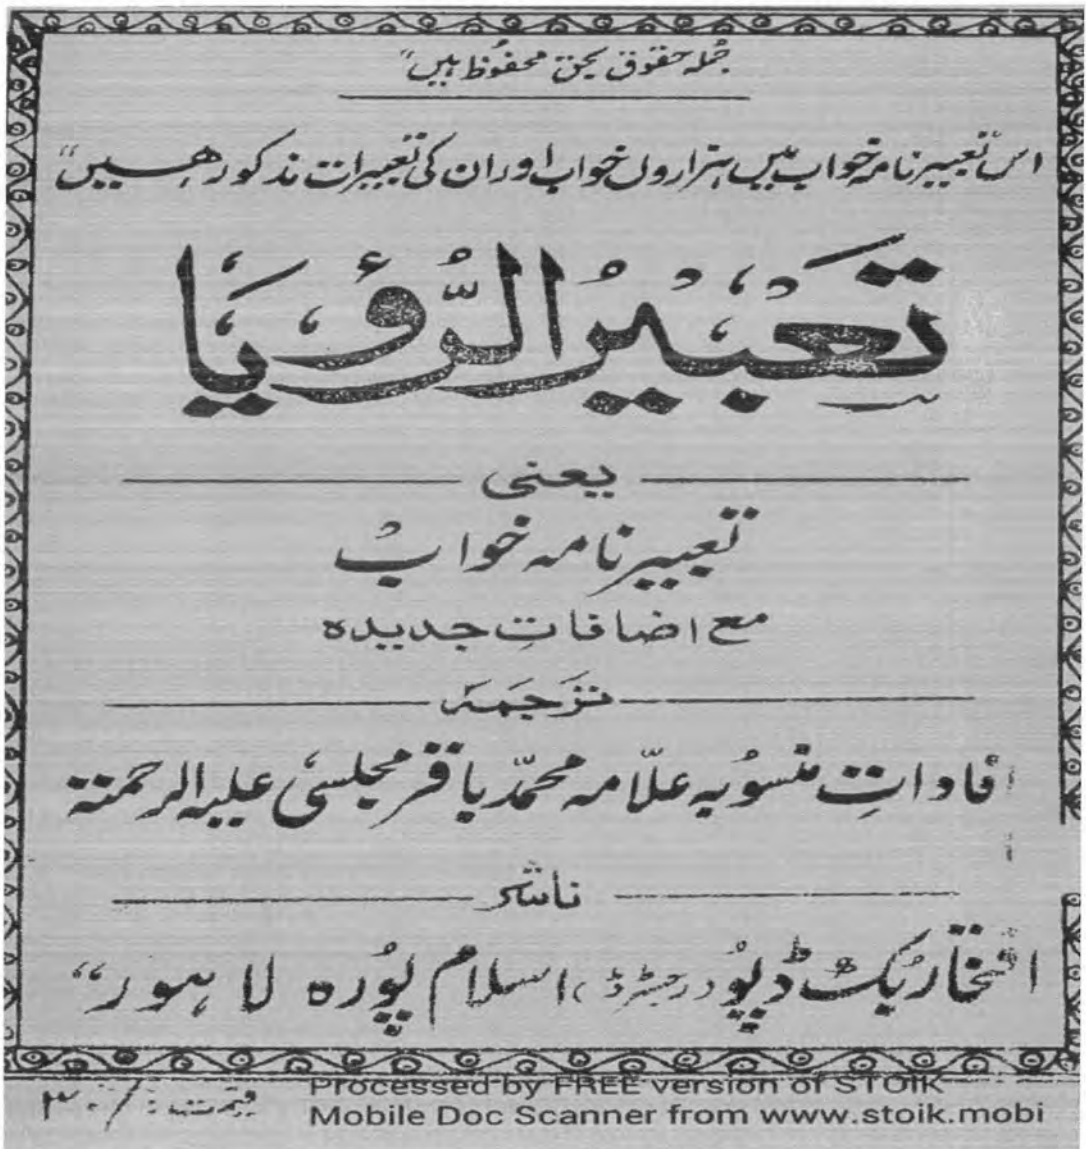 جملہ حقوق بحق محفوظ ہیں"
اس تعبیر نامہ خواب میں ہزاروں خواب اور ان کی تعبیرات مذکور ہیں"
تَعْبِیْرُ الرُّؤیَا
یعنی
تعبیر نامہ خواب
مع اضافاتِ جدیدہ
ترجمہ
افاداتِ منسوبہ علّامہ محمدّ باقر مجلسی علیہ الرحمتہ
ناشر
افتخار بک ڈپو (رجسٹرڈ) اسلام پورہ لاہور"
قیمت :/ ۳۰
Processed by FREE version of STOIK
Mobile Doc Scanner from www.stoik.mobi